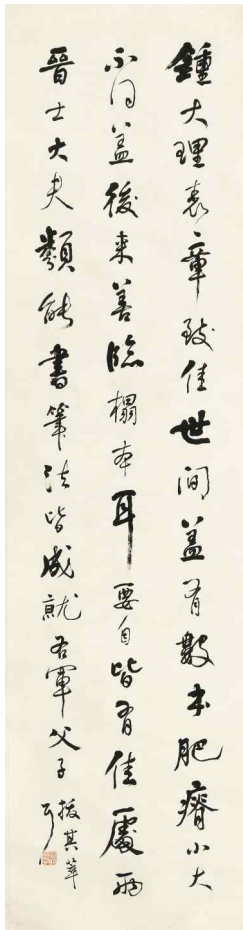 鍾大理表章致佳世間蓋有數本肥瘠小大
不同蓋後來善臨榻本耳要自皆有佳處兩
晉士大夫類能書筆法皆成就右軍父子拔其萃
耳